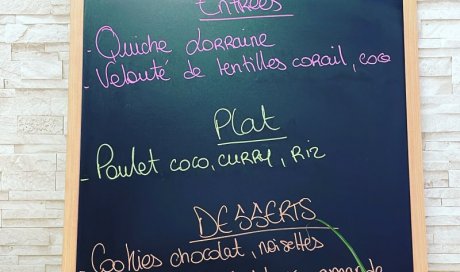 Entrées
- Quiche Lorraine
- Velouté de lentilles corail, coco
Plat
- Poulet coco, curry, riz
DESSERTS
- Cookies chocolat, noisettes
amande